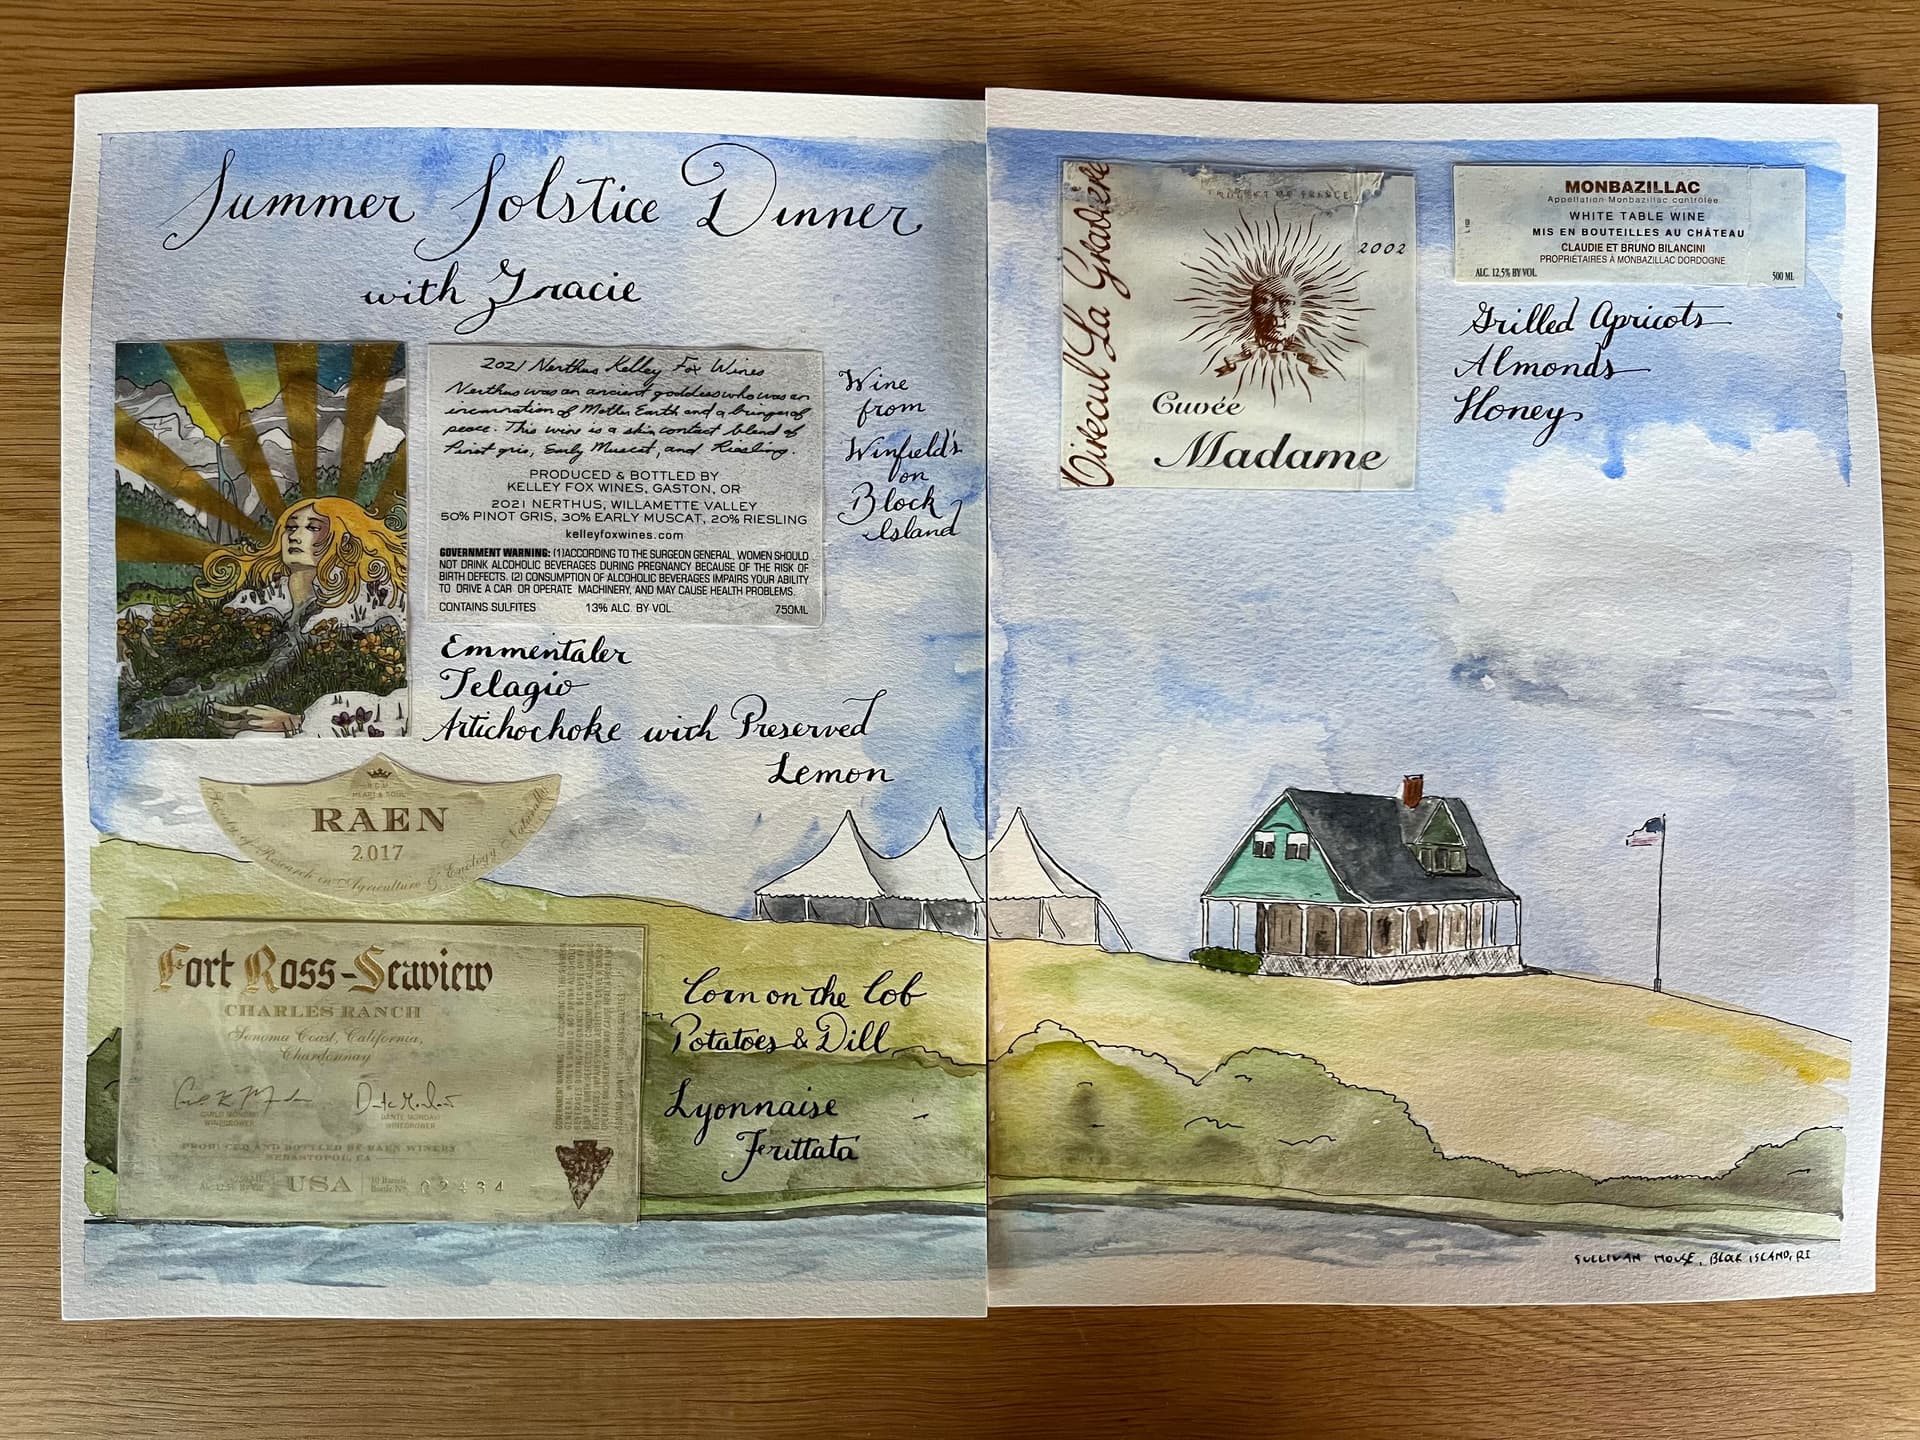 Summer Solstice Dinner
with Gracie
2021 Nerthus Kelley Fox Wines
Nerthus was an ancient goddess who was an
incarnation of Mother Earth and a bringer of
peace. This wine is a skin contact blend of
Pinot gris, Early Muscat, and Riesling.
PRODUCED & BOTTLED BY
KELLEY FOX WINES, GASTON, OR
2021 NERTHUS, WILLAMETTE VALLEY
50% PINOT GRIS, 30% EARLY MUSCAT, 20% RIESLING
kelleyfoxwines.com
GOVERNMENT WARNING: (1)ACCORDING TO THE SURGEON GENERAL, WOMEN SHOULD
NOT DRINK ALCOHOLIC BEVERAGES DURING PREGNANCY BECAUSE OF THE RISK OF
BIRTH DEFECTS. (2) CONSUMPTION OF ALCOHOLIC BEVERAGES IMPAIRS YOUR ABILITY
TO DRIVE A CAR OR OPERATE MACHINERY, AND MAY CAUSE HEALTH PROBLEMS.
CONTAINS SULFITES 13% ALC. BY VOL 750ML
Wine
from
Winfield's
on
Block
Island
Emmentaler
Telagio
Artichochoke with Preserved
Lemon
R.C.M.
HEART & SOUL
RAEN
2017
Research in Agriculture & Enology Naturally
Fort Ross-Seaview
CHARLES RANCH
Sonoma Coast, California,
Chardonnay
CARLO MONDAVI DANTE MONDAVI
WINEGROWER WINEGROWER
PRODUCED AND BOTTLED BY RAEN WINERY
SEBASTOPOL, CA
USA
02434
Corn on the Cob
Potatoes & Dill
Lyonnaise
Frittata
PRODUCT OF FRANCE
2002
Cuvée
Madame
MONBAZILLAC
Appellation Monbazillac contrôlée
WHITE TABLE WINE
MIS EN BOUTEILLES AU CHÂTEAU
CLAUDIE ET BRUNO BILANCINI
PROPRIÉTAIRES À MONBAZILLAC DORDOGNE
ALC. 12,5% BY VOL. 500 ML
Grilled Apricots
Almonds
Honey
SULLIVAN HOUSE, BLOCK ISLAND, RI